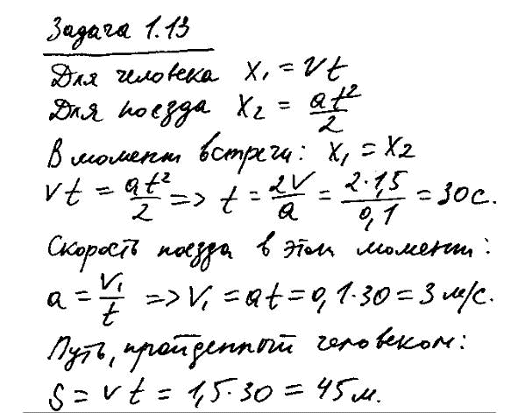 Задача 1.13
Для человека x₁ = vt
Для поезда x₂ = at²/2
В момент встречи: x₁ = x₂
vt = at²/2 => t = 2v/a = 2·1,5/0,1 = 30 с.
Скорость поезда в этот момент:
a = v₁/t => v₁ = at = 0,1·30 = 3 м/с.
Путь, пройденный человеком:
S = vt = 1,5·30 = 45 м.